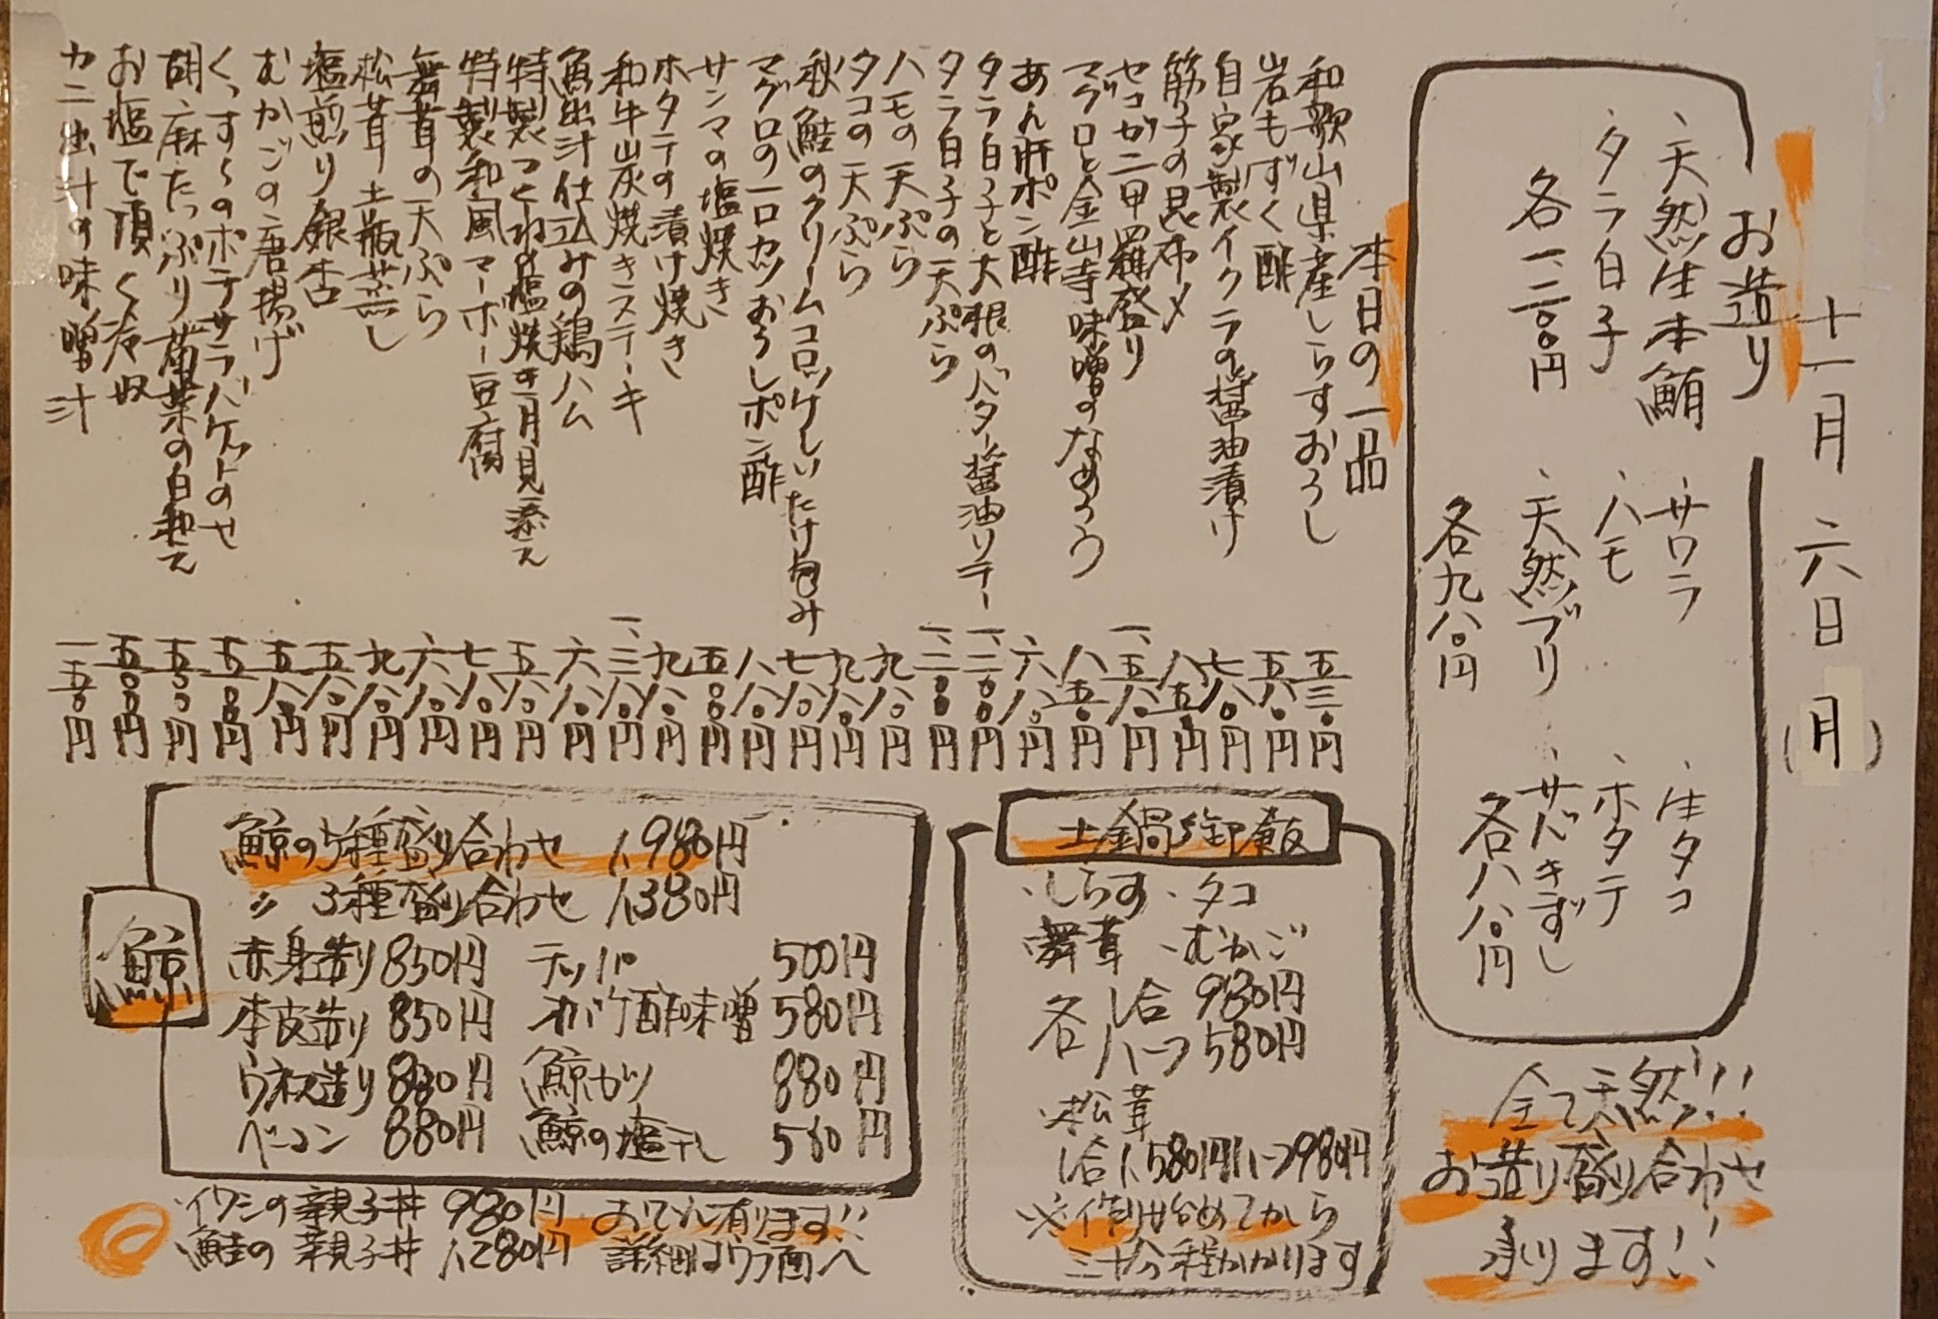 十一月六日(月)
お造り
・天然生本鮪 ・サワラ ・生タコ
・タラ白子 ・ハモ ・ホタテ
各一、二〇〇円 ・天然ブリ ・サバきずし
各九八〇円 各八八〇円
全て天然!!!
お造り盛り合わせ
承ります!!
本日の一品
和歌山県産しらすおろし 五三〇円
岩もずく酢 五八〇円
自家製イクラの醤油漬け 七八〇円
筋子の昆布〆 八五〇円
セコガニ甲羅盛り 一、五八〇円
マグロと金山寺味噌のなめろう 八五〇円
あん肝ポン酢 六八〇円
タラ白子と大根のバター醤油ソテー 一、二〇〇円
タラ白子の天ぷら 一、二〇〇円
ハモの天ぷら 九八〇円
タコの天ぷら 九八〇円
秋鮭のクリームコロッケしいたけ包み 七八〇円
マグロの一口カツおろしポン酢 八八〇円
サンマの塩焼き 五〇〇円
ホタテの漬け焼き 九八〇円
和牛炭焼きステーキ 一、三八〇円
魚出汁仕込みの鶏ハム 六八〇円
特製つくねの塩焼き月見添え 五八〇円
特製和風マーボー豆腐 七八〇円
舞茸の天ぷら 六八〇円
松茸土瓶蒸し 九八〇円
塩煎り銀杏 五八〇円
むかごの唐揚げ 五八〇円
くっす〜のポテサラバケットのせ 五〇〇円
胡麻たっぷり菊菜の白和え 五五〇円
お塩で頂く冷奴 五〇〇円
カニ出汁の味噌汁 一五〇円
土鍋御飯
・しらす ・タコ
・舞茸 ・むかご
各 1合 980円
各 ハーフ 580円
・松茸
1合 1,580円 ハーフ 980円
※作り始めてから
三十分程かかります
鯨
鯨の5種盛り合わせ 1,980円
〃 3種盛り合わせ 1,380円
赤身造り 850円 テッパ 500円
本皮造り 850円 オバケ酢味噌 580円
ウネス造り 880円 鯨カツ 880円
ベーコン 880円 鯨の塩干し 560円
・イワシの親子丼 980円 おでん有ります!!
・鮭の親子丼 1,280円 詳細はウラ面へ